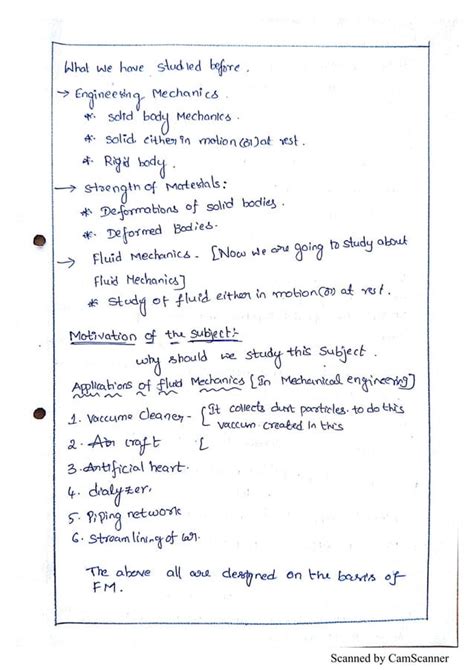 What we have studied before.
→ Engineering Mechanics.
* solid body Mechanics.
* solid either in motion (or) at rest.
* Rigid body.
→ Strength of Materials:
* Deformations of solid bodies.
* Deformed Bodies.
→ Fluid Mechanics. [Now we are going to study about
Fluid Mechanics]
* Study of fluid either in motion (or) at rest.
Motivation of the subject:-
why should we study this subject.
Applications of fluid Mechanics [In Mechanical engineering]
1. Vaccume cleaner - [It collects dust particles. to do this
vaccum created in this
2. Air craft [
3. Artificial heart.
4. dialyzer.
5. Piping network
6. Streamlining of car.
The above all are designed on the bases of
FM.
Scanned by CamScanner